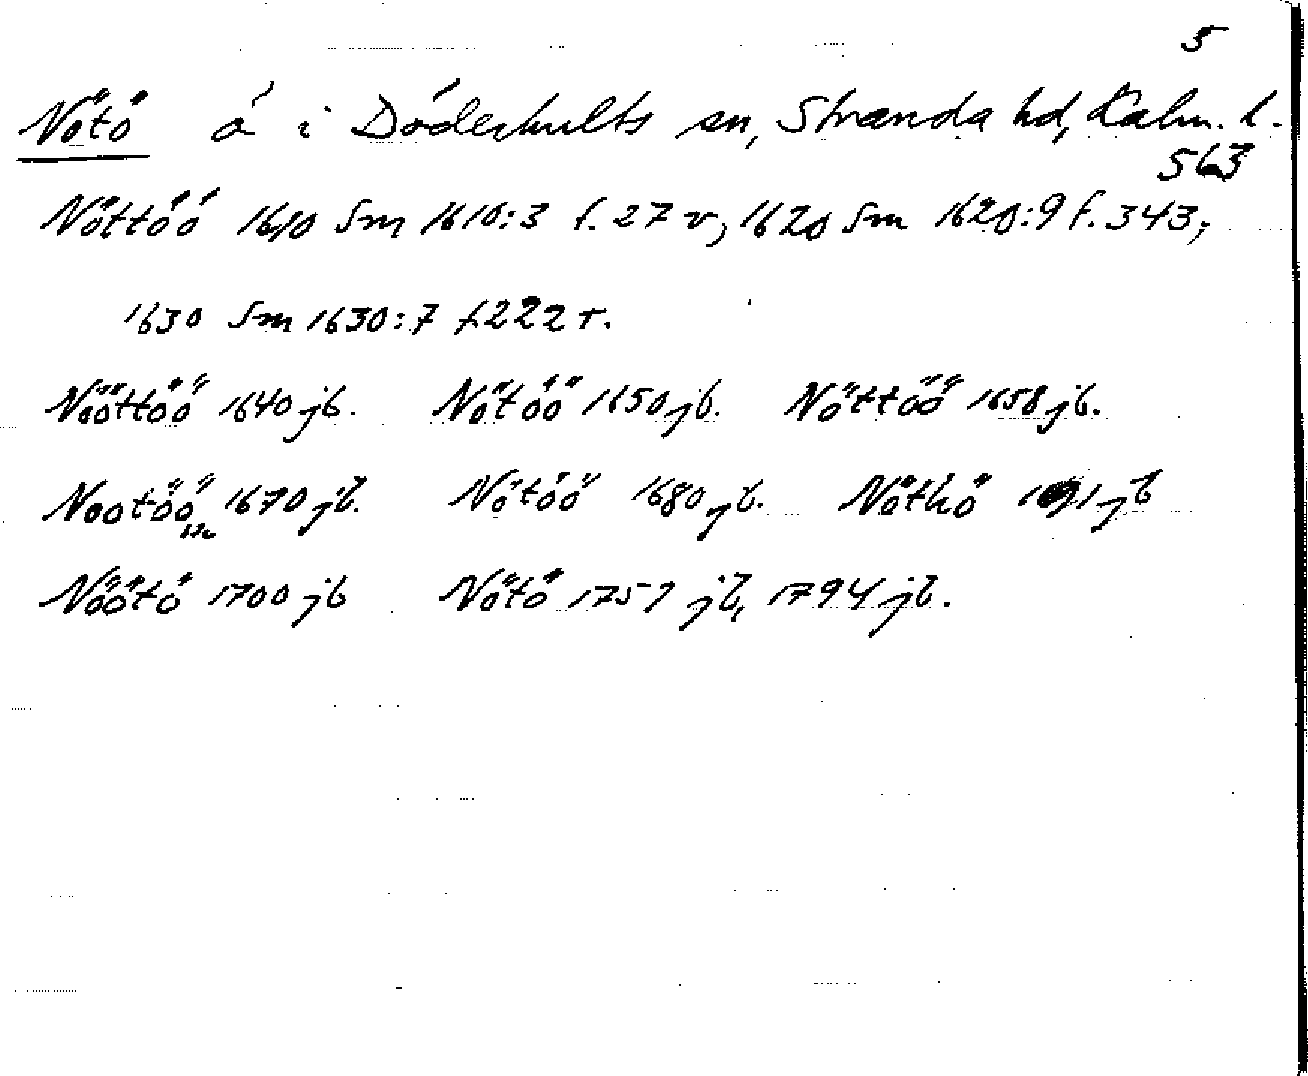 5
Nötö ö i Döderhults sn, Stranda hd, Kalm. l.
563
Nöttöö 1610 Sm 1610:3 f. 27 v, 1620 Sm 1620:9 f. 343,
1630 Sm 1630:7 f. 222 r.
Nööttöö 1640 jb. Nötöö 1650 jb. Nöttöö 1658 jb.
Nootöö 1670 jb. Nötöö 1680 jb. Nöthö jb
Öötö 1700 jb Nötö 1757 jb, 1794 jb.